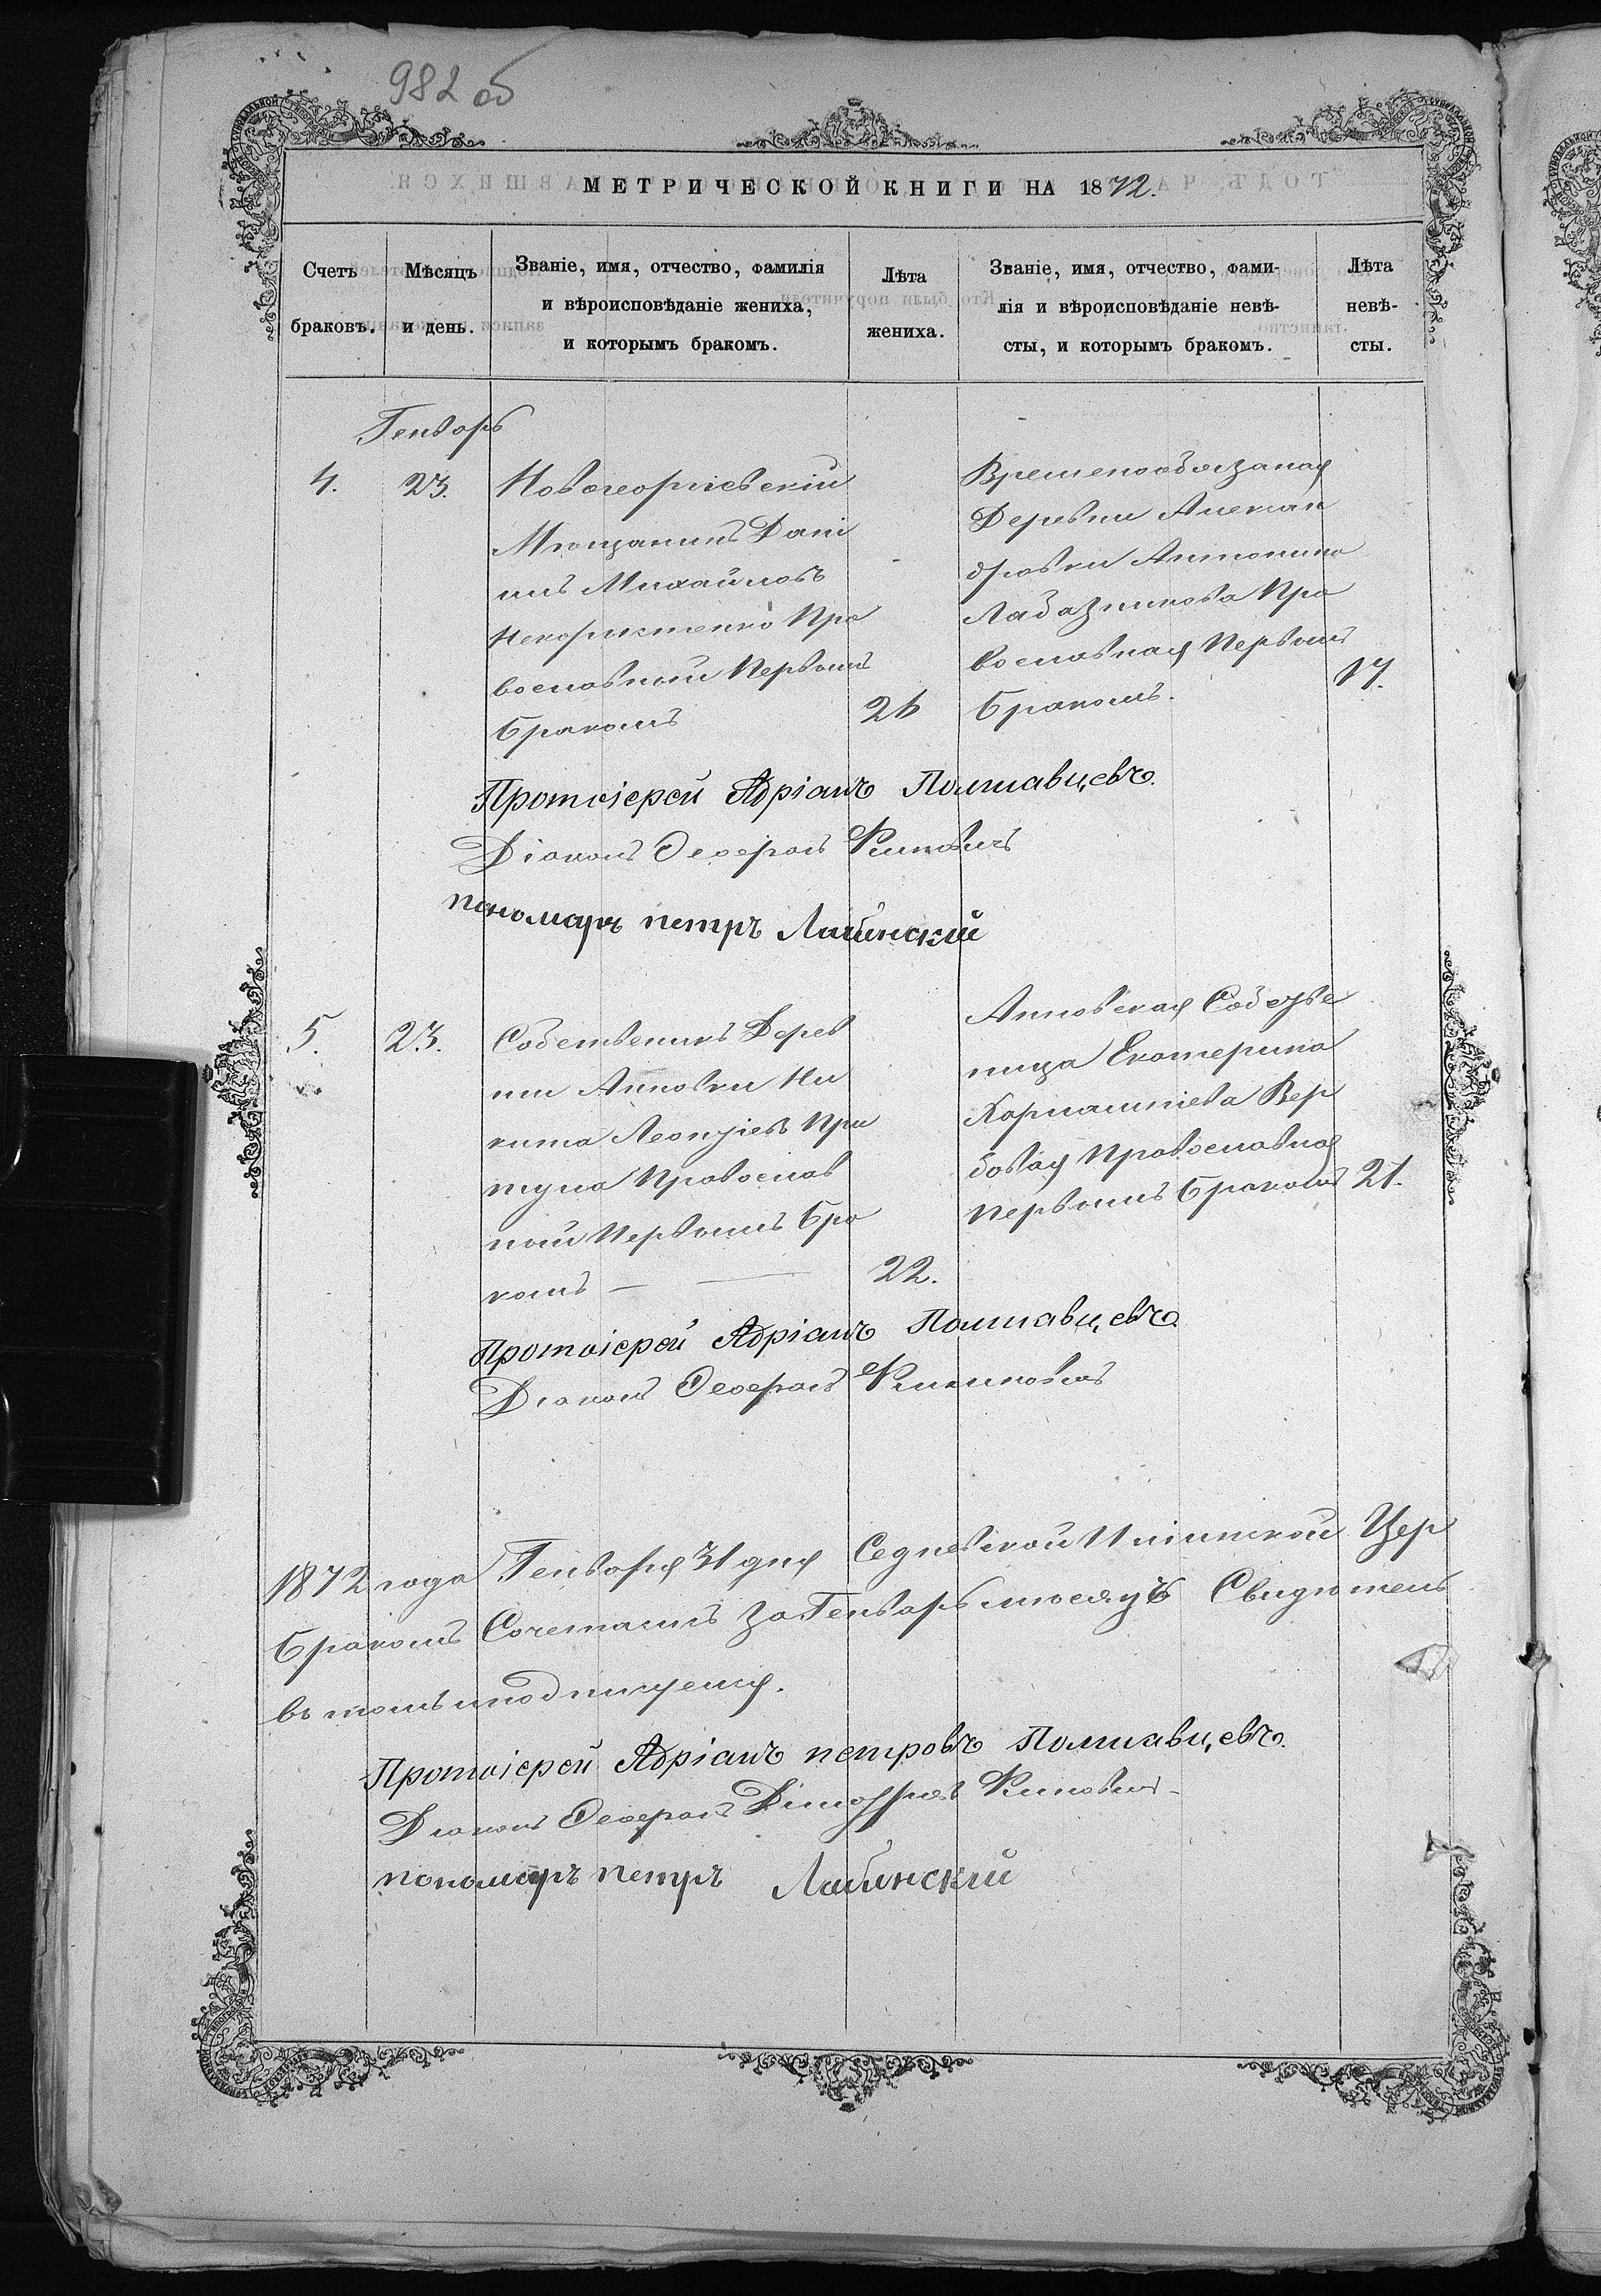 982 об
МЕТРИЧЕСКОЙ КНИГИ НА 1872.
Счетъ браковъ.
Мѣсяцъ и день.
Званіе, имя, отчество, фамилія
и вѣроисповѣданіе жениха,
и которымъ бракомъ.
Лѣта жениха.
Званіе, имя, отчество, фами-
лія и вѣроисповѣданіе невѣ-
сты, и которымъ бракомъ.
Лѣта невѣ-
сты.
Генварь
4.
23.
Новогеоргіевскій
Мѣщанинъ Дани
илъ Михайловъ
Пра
вославный Первымъ
Бракомъ
26
Временообязаная
Деревни Алексан
дровки Антонина
Лабазникова Пра
вославная Первымъ
Бракомъ.
17.
Протоіерей Адріанъ Полтавцевъ.
Діаконъ
пономарь петръ
5.
23.
Собственикъ Дерев
ни Анновки Ни
кита Леонтіевъ При
тула Православ
ный Первымъ Бра
комъ
22.
Анновская Собстве
ница Екатерина
Вер
бовая Православная
Первымъ Бракомъ
21.
Протоіерей Адріанъ Полтавцевъ.
Діаконъ
1872 года Генваря 31 дня Цер
Бракомъ за Генварь мѣсяцъ
въ томъ и подписуемся.
Протоіерей Адріанъ петровъ Полтавцевъ.
Діаконъ
пономарь петръ